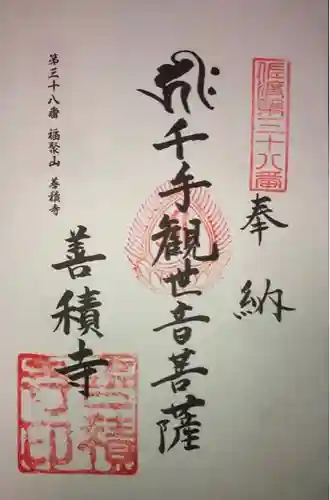 佐渡第三十八番
奉納
千手観世音菩薩
善積寺
第三十八番 福聚山 善積寺